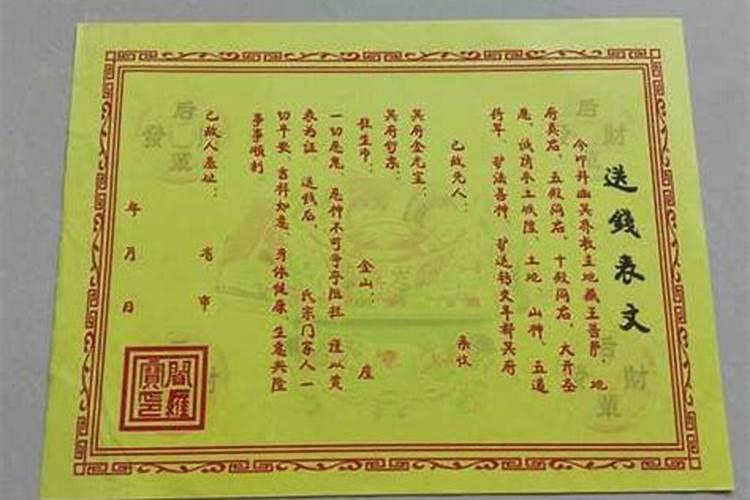 送錢表文
今叩拜幽冥界教主地藏王菩萨、地
府炎君、五殿阎君、十殿阎君、大齐圣
恩、诚请本土城隍、土地、山神、五道
将军、护法善神、护送钱文车辇冥府
已故先人： 亲收
冥府金元宝：
冥府哲票： 金山： 座
牡生币：
一切恶鬼、厄神不可争夺阻拦、谨以黄
表为证、送钱后、 氏宗门家人一
切平安、吉祥如意、身体健康、生意兴隆
事事顺利
已故人墓地： 省 市
年 月 日
閻羅寶印
后發財單
后發財單
后發財單
財